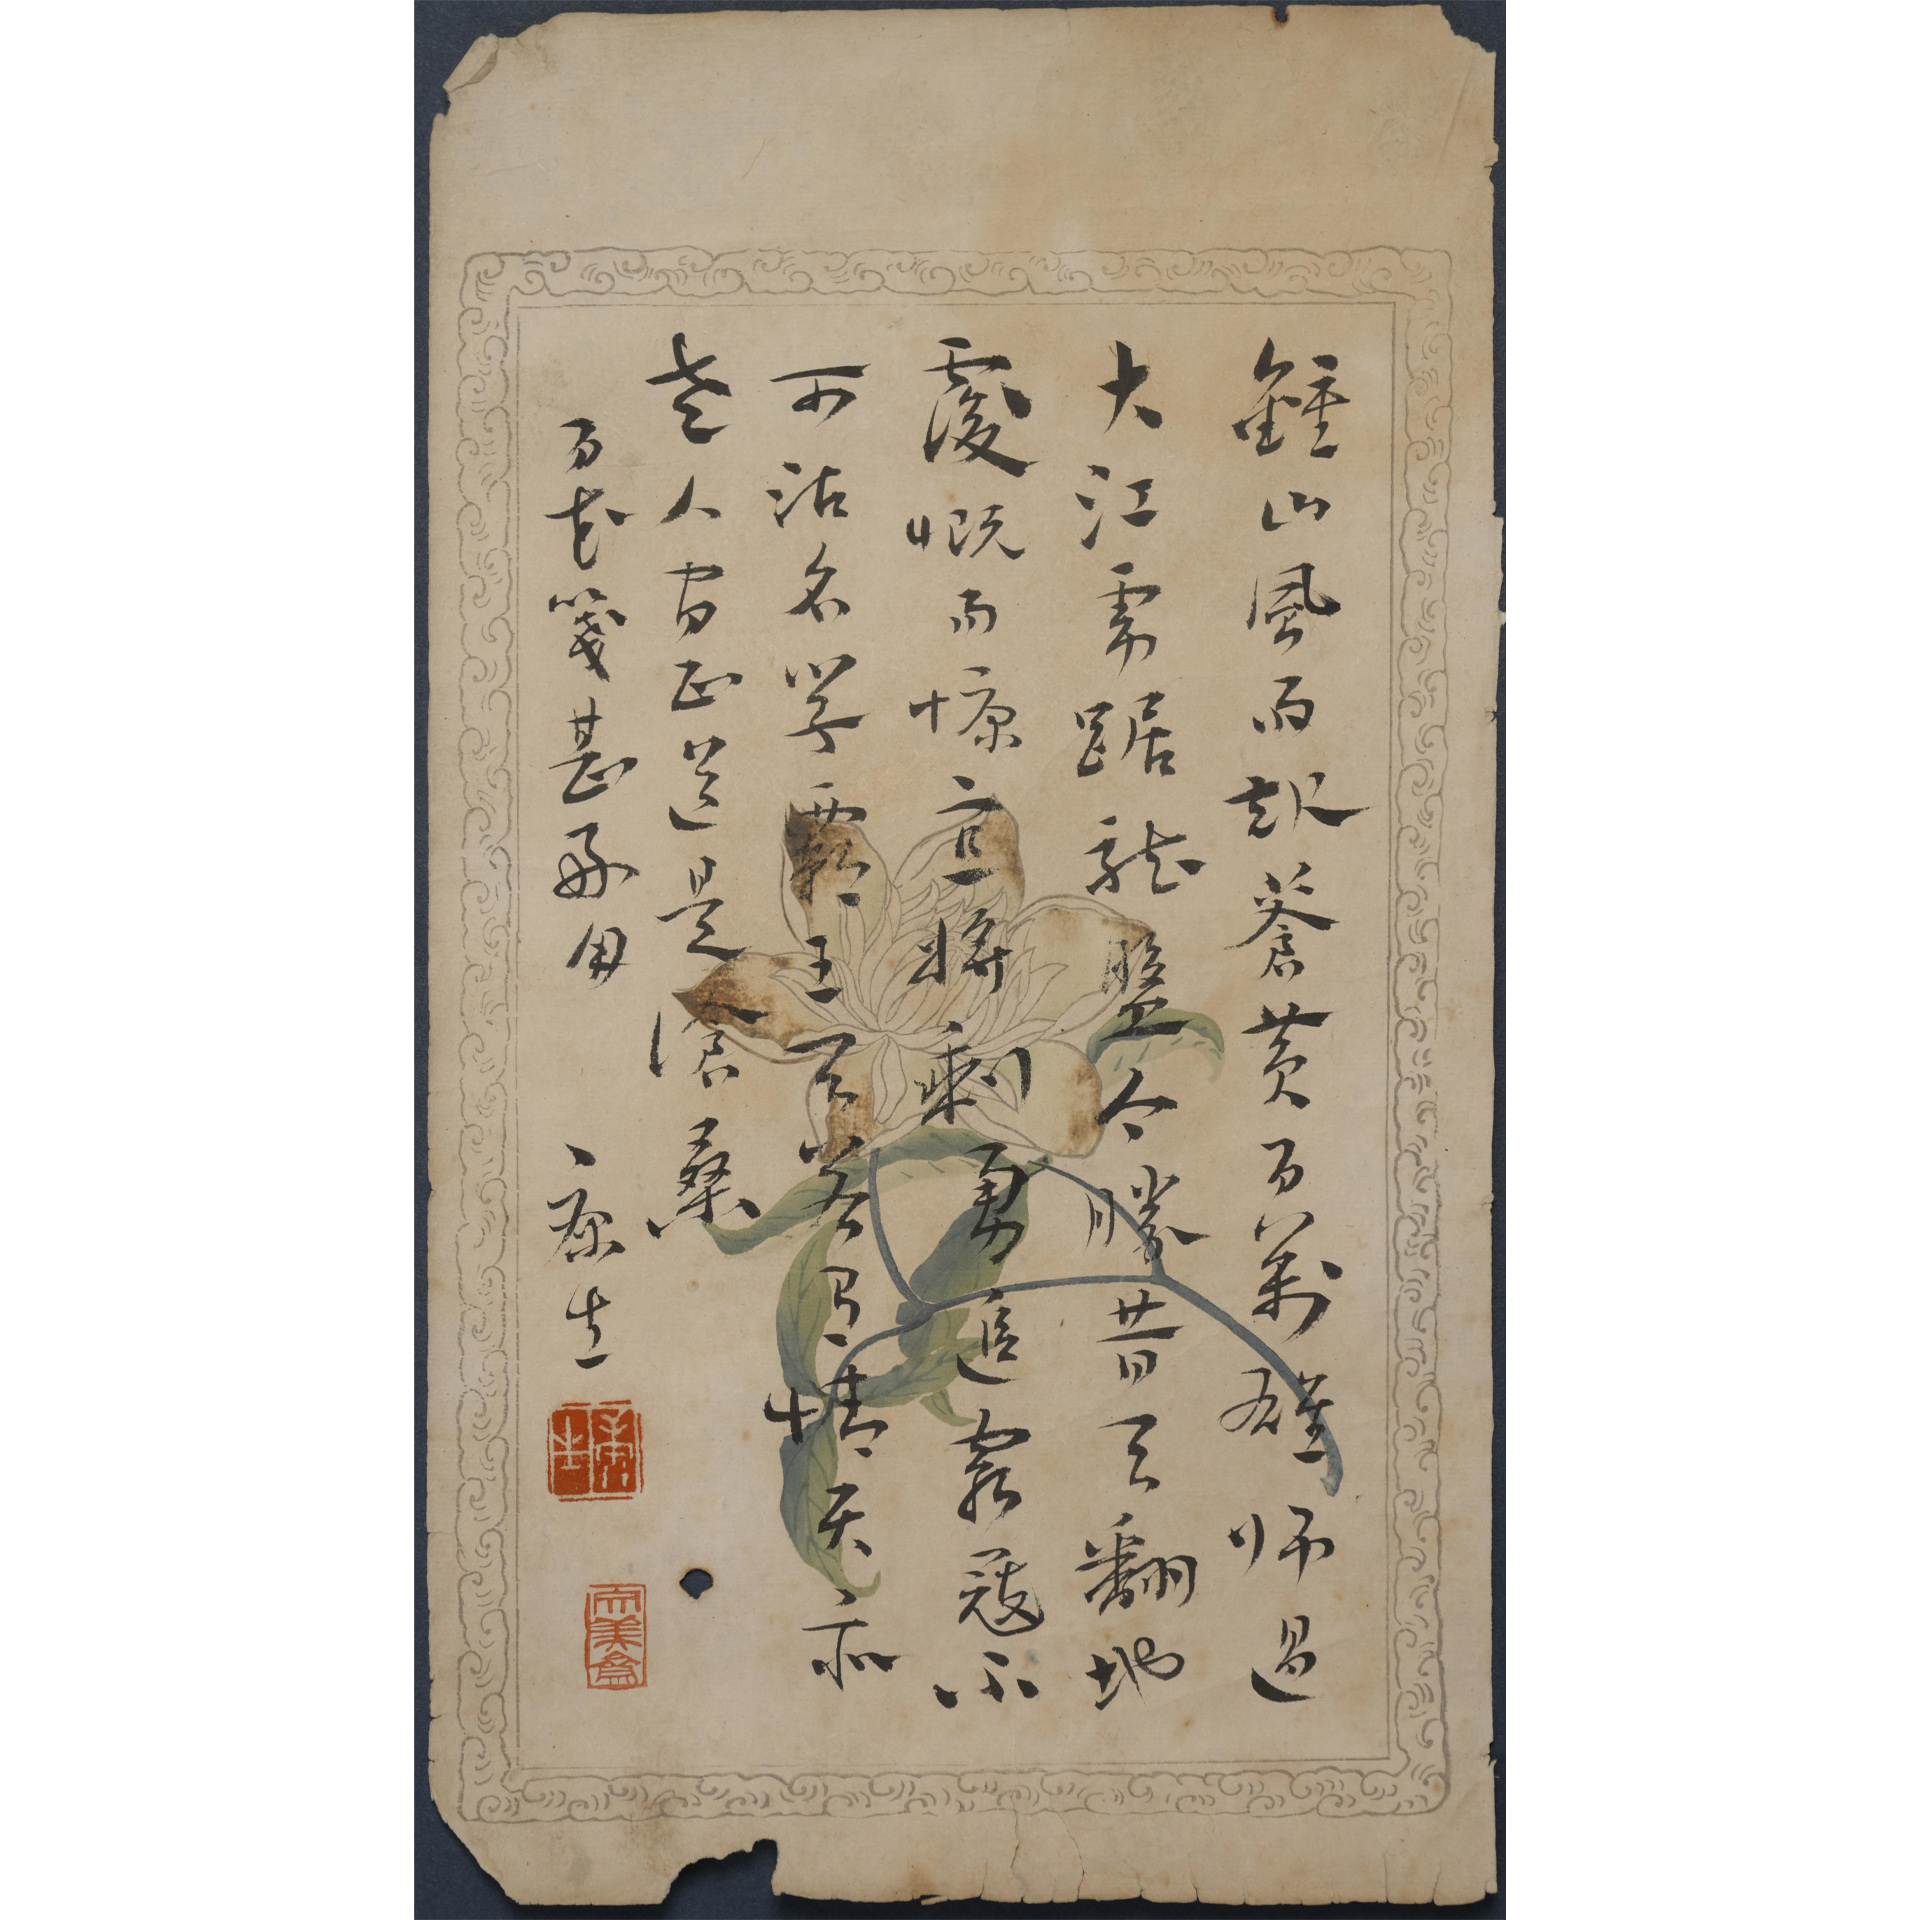 鍾山風雨起蒼黃百萬雄師過
大江虎踞龍盤今勝昔天翻地
覆慨而慷宜將剩勇追窮寇不
可沽名學霸王天若有情天亦
老人間正道是滄桑
百花箋甚好用 康生
康生